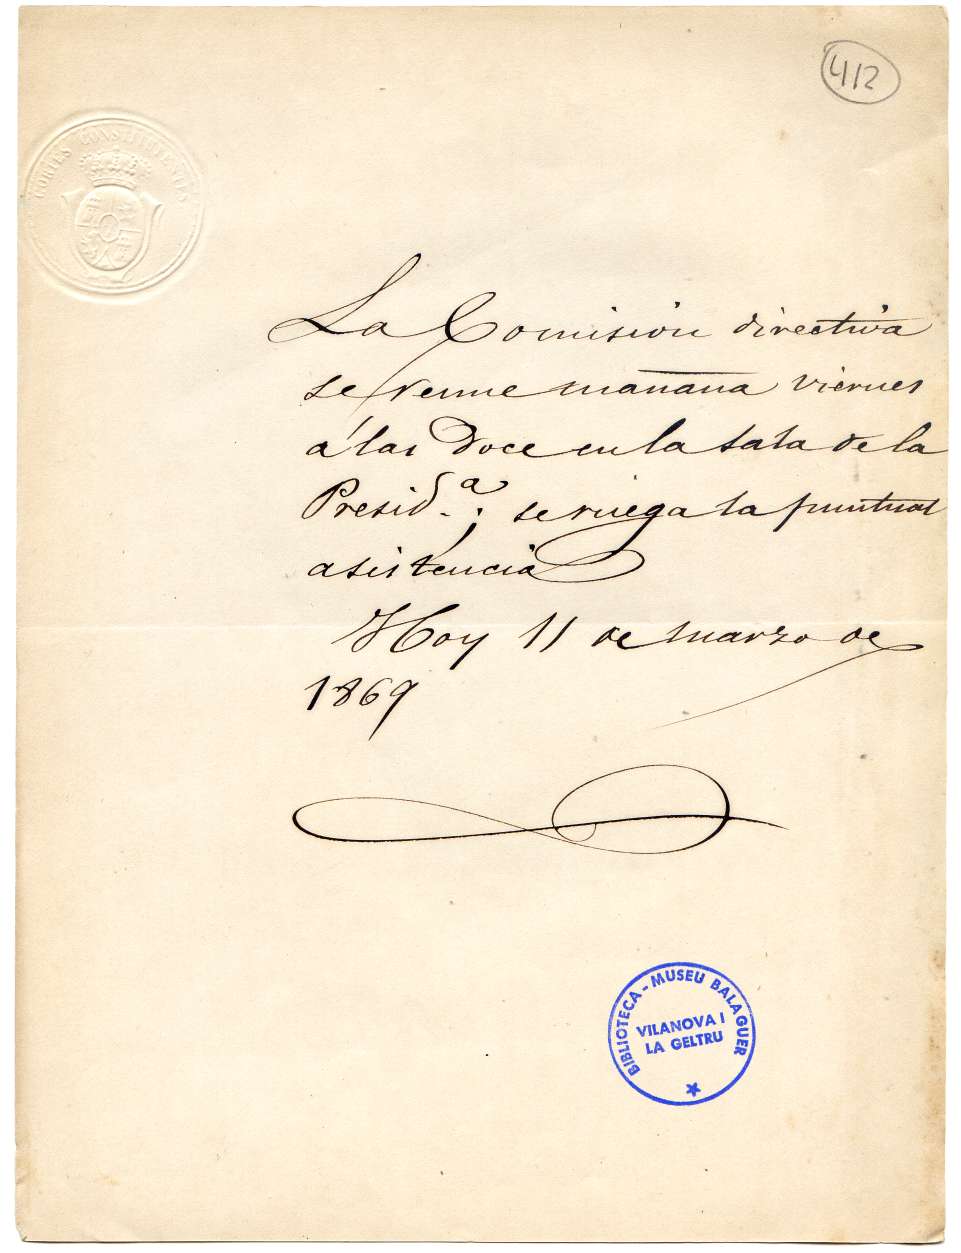 412
CORTES CONSTITUYENTES
La Comisión directiva
se reune mañana viernes
á las Doce en la sala de la
Presid.ª; se ruega la puntual
asistencia
Hoy 11 de marzo de
1869
BIBLIOTECA - MUSEU BALAGUER
VILANOVA I
LA GELTRU